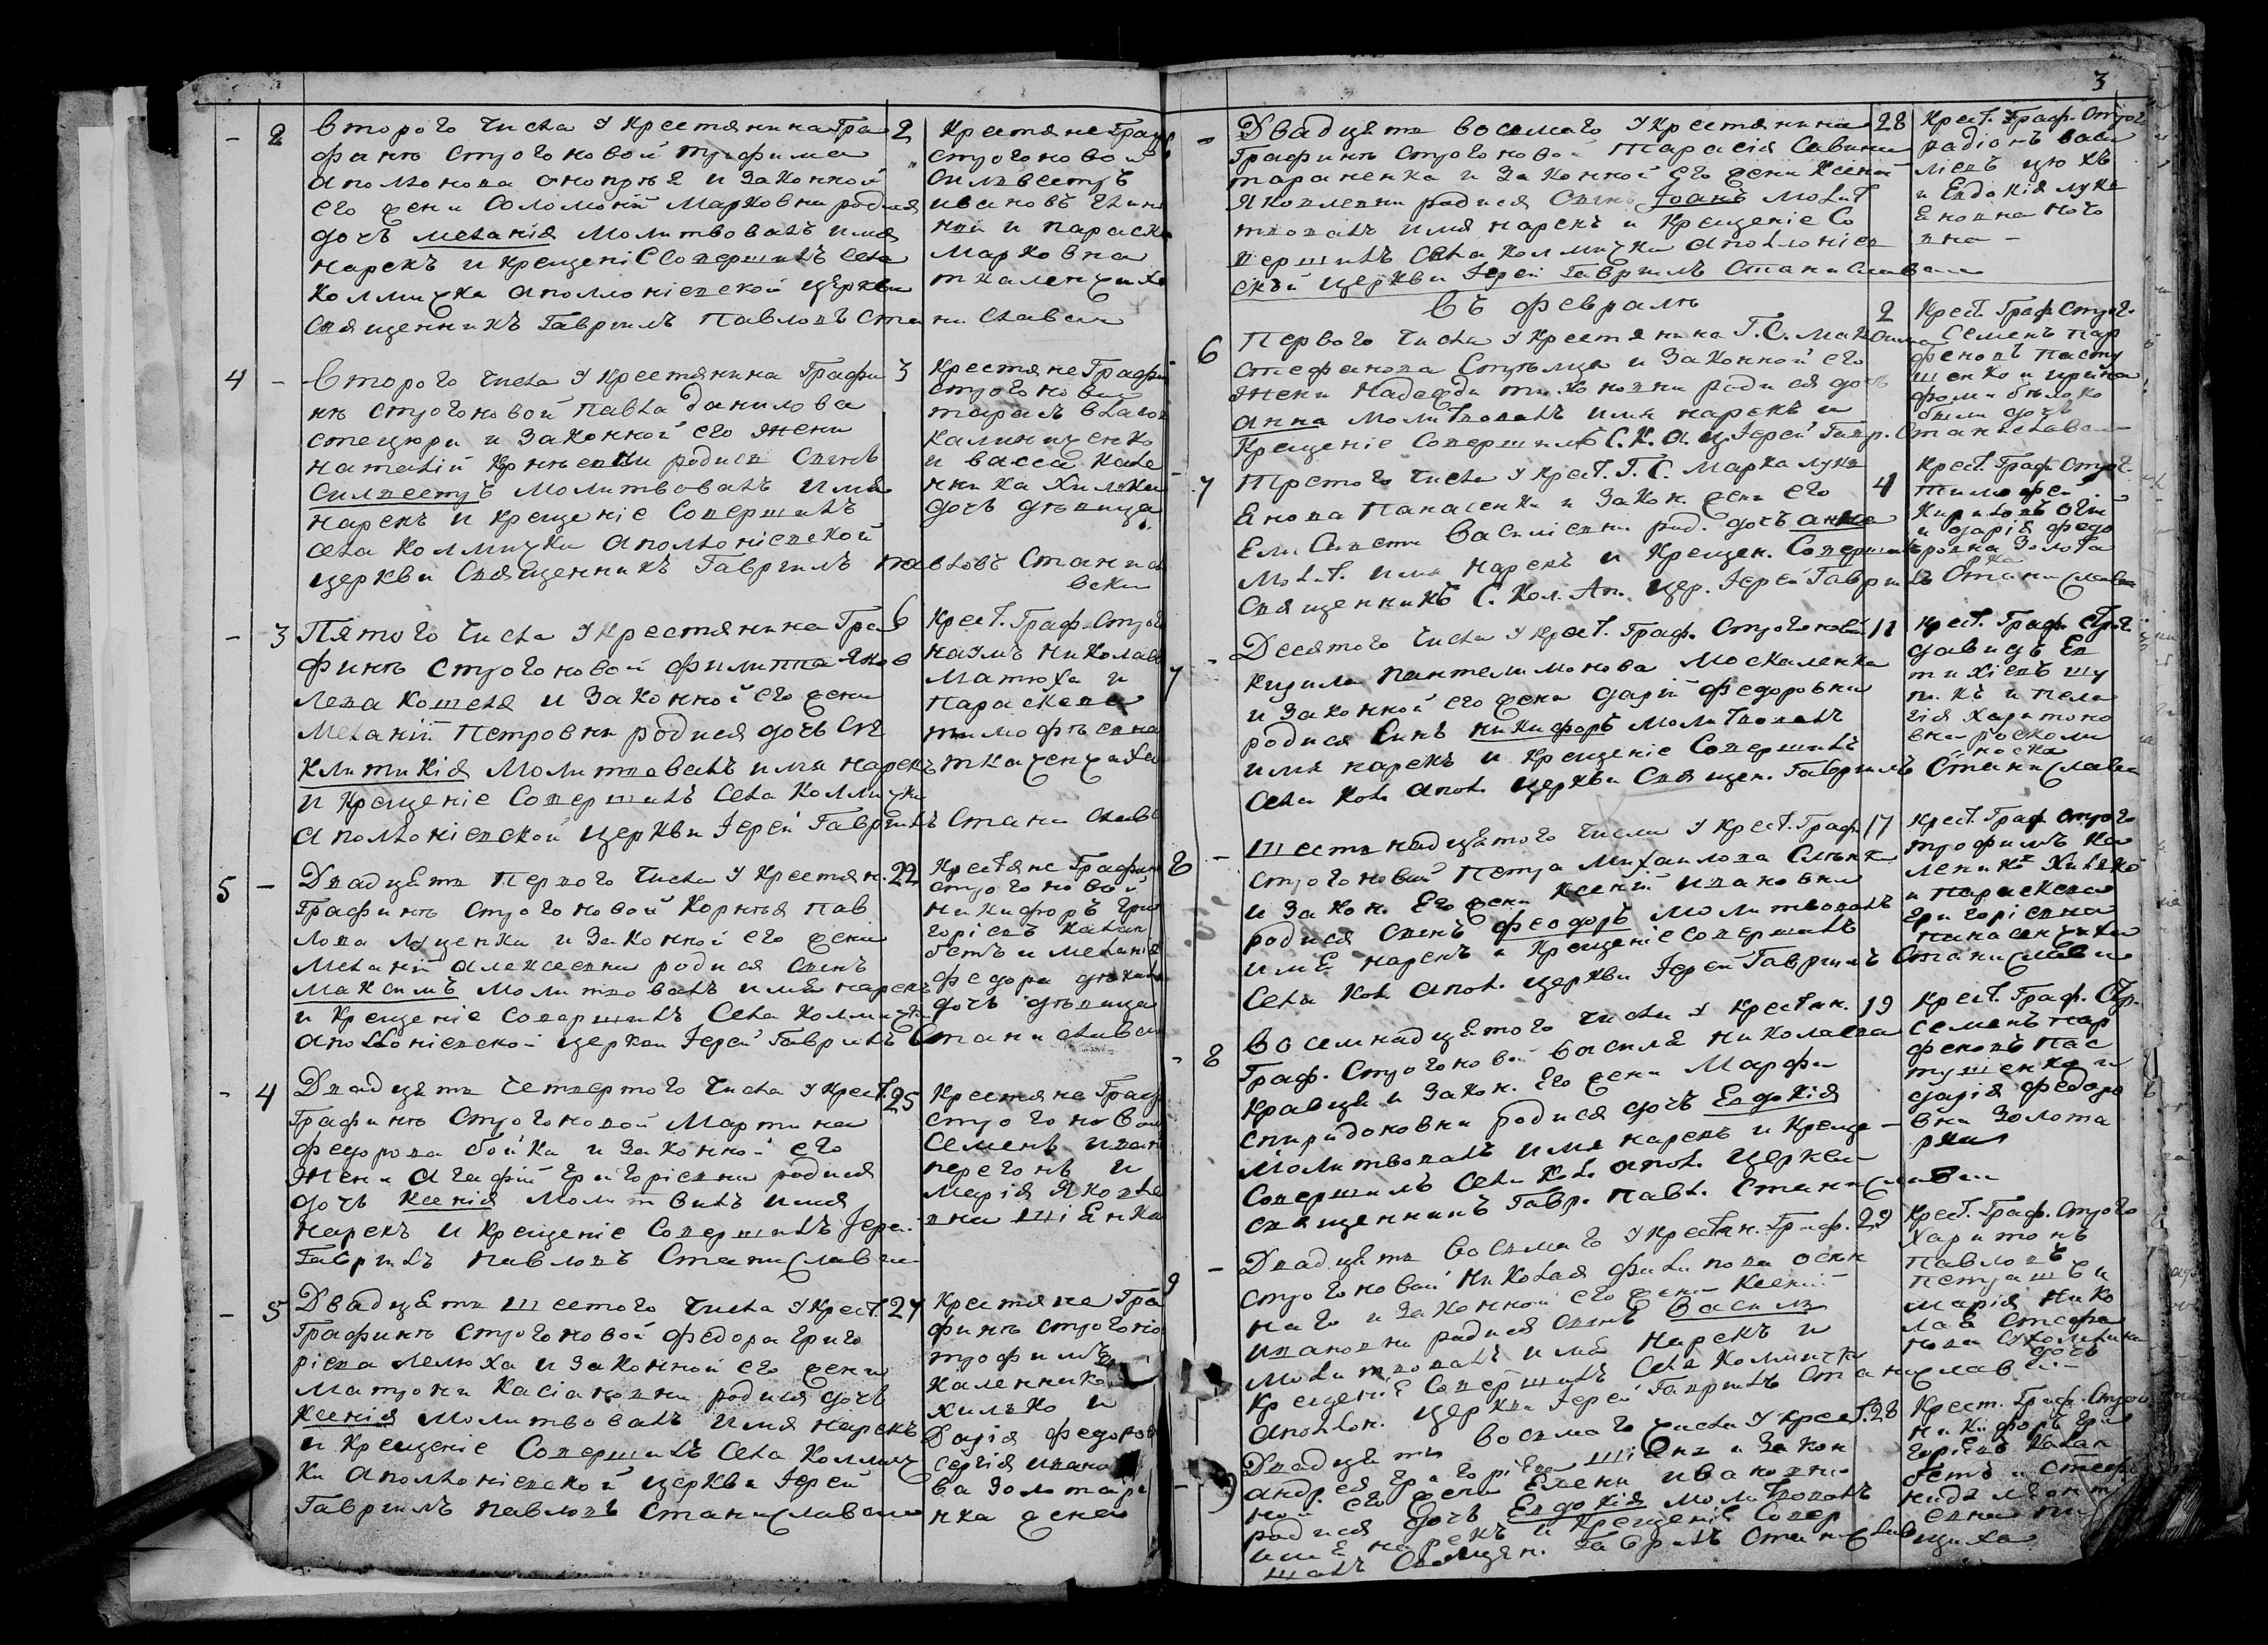 3
- 2 Второго числа У Крестянина Гра 2
финѣ Строгоновой Трофима
Аполонова Онопрѣя и Законной
его жени Соломоніи Марковни родися
дочъ Меланія Молитвовалъ имя
нарекъ и крещеніе Совершилъ села
Коллмижка Аполлоніевской церкви
Священникъ Гаврiилъ Павловъ Ста ниславски
Крестяне Граф
Строгоновой
Силвестръ
ивановъ
и параска
Марковна
4 - Второго числа У Крестянина Графи 3
нѣ Строгоновой Павла Данилова
Стецюри и Законной его жени
Наталіи родися Синъ
Силвестръ Молитвовалъ имя
нарекъ и крещеніе Совершилъ
села Коллмижки Аполоніевской
церкви Священникъ Гавріилъ Павловъ Станисл
вски
Крестяне Графи
Строгонови
Тарасъ власов
Калиниченко
и васса Кале
ника Хилжка
дочъ дѣвица
- 3 Пятого числа У Крестянина Гра 6
финѣ Строгоновой Филиппа Яков
лева Кошеля и Законной его жени
Меланіи Петровни родися дочъ Син
клитикія Молитвовалъ имя нарекъ
и крещеніе Совершилъ села Коллмижки
Аполоніевской церкви Іерей Гавріилъ Станиславс
Крест. Граф. Строго
наумъ николаев
Матюха и
Параскева
тимофѣевна
ткаченчиха
5 - Двадцять Первого числа У Крестян. 22
Графинѣ Строгоновой Корнѣя Пав
лова Луценка и Законной его жени
Меланіи Алексеевни родися Синъ
Максимъ Молитвовалъ имя нарекъ
и крещеніе Совершилъ села Коллмижки
Аполоніевской церкви Іерей Гавріилъ Станиславски
Крестяне Графин
Строгоновой
Никифоръ Гри
горіевъ Калан
бетъ и Меланія
федора
дочъ дѣвица
- 4 Двадцять Четвертого числа У Крест. 25
Графинѣ Строгоновой Мартина
Федорова бойка и Законной его
жени Агафіи Григоріевни родися
дочъ Ксенія Молитвилъ имя
нарекъ и крещеніе Совершилъ Іерей
Гавріилъ Павловъ Станиславски
Крестяне Граф
Строгонов
Семенъ иван
перегонъ и
Марія Яковле
вна шіенка
- 5 Двадцять Шестого числа У Крест. 27
Графинѣ Строгоновой Федора Григо
ріева Лелюха и Законной его жени
Матрони Касіановни родися дочъ
Ксенія Молитвовалъ имя нарекъ
и крещеніе Совершилъ села Коллмиж
ки Аполоніевской церкви Іерей
Гавріилъ Павловъ Станиславски
Крестяне Гра
финѣ Строгоно
трофимъ
Каленико
хилжко и
Дарія Федоров
Сергія ивано
ва Золотаре
нка жена
- Двадцять восмаго У Крестянина 28
Графинѣ Строгоновой Тарасія Савини
тараненка и Законной его жени Ксеніи
Яковлевни родися Синъ Іоанъ Молит
твовалъ имя нарекъ и крещеніе Со
вершилъ Села Коллмижки Аполлоніев
ской церкви Іерей Гавріилъ Станиславски
Крест. Граф. Строго
радіонъ васи
лиевъ
и Евдокія лукя
новна
вна -
Въ Февралѣ
6 Первого числа У Крестянина Г. С. Максима 2
Стефанова Стрѣлца и Законной его
жени Надежди тихоновни родися дочъ
Анна Молитвовалъ имя нарекъ и
крещеніе Совершилъ С. К. А. Ц. Іерей Гавр. Станиславски
Крест. Граф. Строг.
Семенъ пар
феновъ пасту
шенко и ирина
фоми
дочъ
- 7 Третого числа У Крест. Г. С. Марка Лукя 4
Янова Панасенка и Закон. жени его
Елисавети Василіевни род. дочъ Анна
Молит. имя нарекъ и крещен. Совершилъ
Священникъ С. Кол. Ап. Цер. Іерей Гавріилъ Станиславски
Крест. Граф. Строг.
Тимофей
Кириловъ
и дарія федо
ровна Золота
рка
7 - Десятого числа У Крест. Граф. Строгоновой 11
Кирила Пантелимонова Москаленка
и Законной его жени Даріи Федоровни
родися Синъ Никифоръ Молитвовалъ
имя нарекъ и крещеніе Совершилъ
Села Кол. Апол. церкви Священ. Гавріилъ Станиславски
Крест. Граф. Строг
давидъ Ев
тихіевъ шу
пикъ и пела
гія Харитоно
вна
8 - Шестнадцятого числа У Крест. Граф. 17
Строгоновой Петра Михаилова
и Закон. его жени Ксеніи ивановни
родися Синъ Феодоръ Молитвовалъ
имя нарекъ и крещеніе совершилъ
Села Кол. Апол. церкви Іерей Гавріилъ Станиславски
Крест. Граф. Строго
трофимъ Ка
лениковъ Хилжко
и параскева
Григоріевна
панасенчиха
- 8 Восемнадцятого числа У Крестян. 19
Граф. Строгоновой василя Николаева
Кравця и Закон. его жени Марфи
Спиридоновни родися дочъ Евдокія
Молитвовалъ имя нарекъ и креще -
Совершилъ Села Кол. Апол. церкви
Священникъ Гавр. Павл. Станиславски
Крест. Граф. Стр.
Семенъ пар
феновъ пас
тушенко и
дарія федоро
вна Золота
рка
9 - Двадцять восмаго У Крестян. Граф. 29
Строгоновой Николая Филипова
и Законной его жени Ксеніи
ивановни родися Синъ Василь
Молитвовалъ имя нарекъ и
крещеніе Совершилъ Села Коллмижки
Аполлон. церкви Іерей Гавріилъ Станиславски
Крест. Граф. Строго
Харитонъ
Павловъ
Петрашъ и
Марія Нико
лая Стефа
нова
дочъ
- 9 Двадцять восмаго числа У Крест. 28
Андрея Григоріева шіенка и Закон
ной его жени Елени ивановни
родися дочъ Евдокія Молитвовалъ
имя нарекъ и крещеніе Совер
шилъ Священ. Гавріилъ Станиславс
Крест. Граф. Строго
никифоръ Гри
горіевъ Калан
бетъ и Стефа
нида